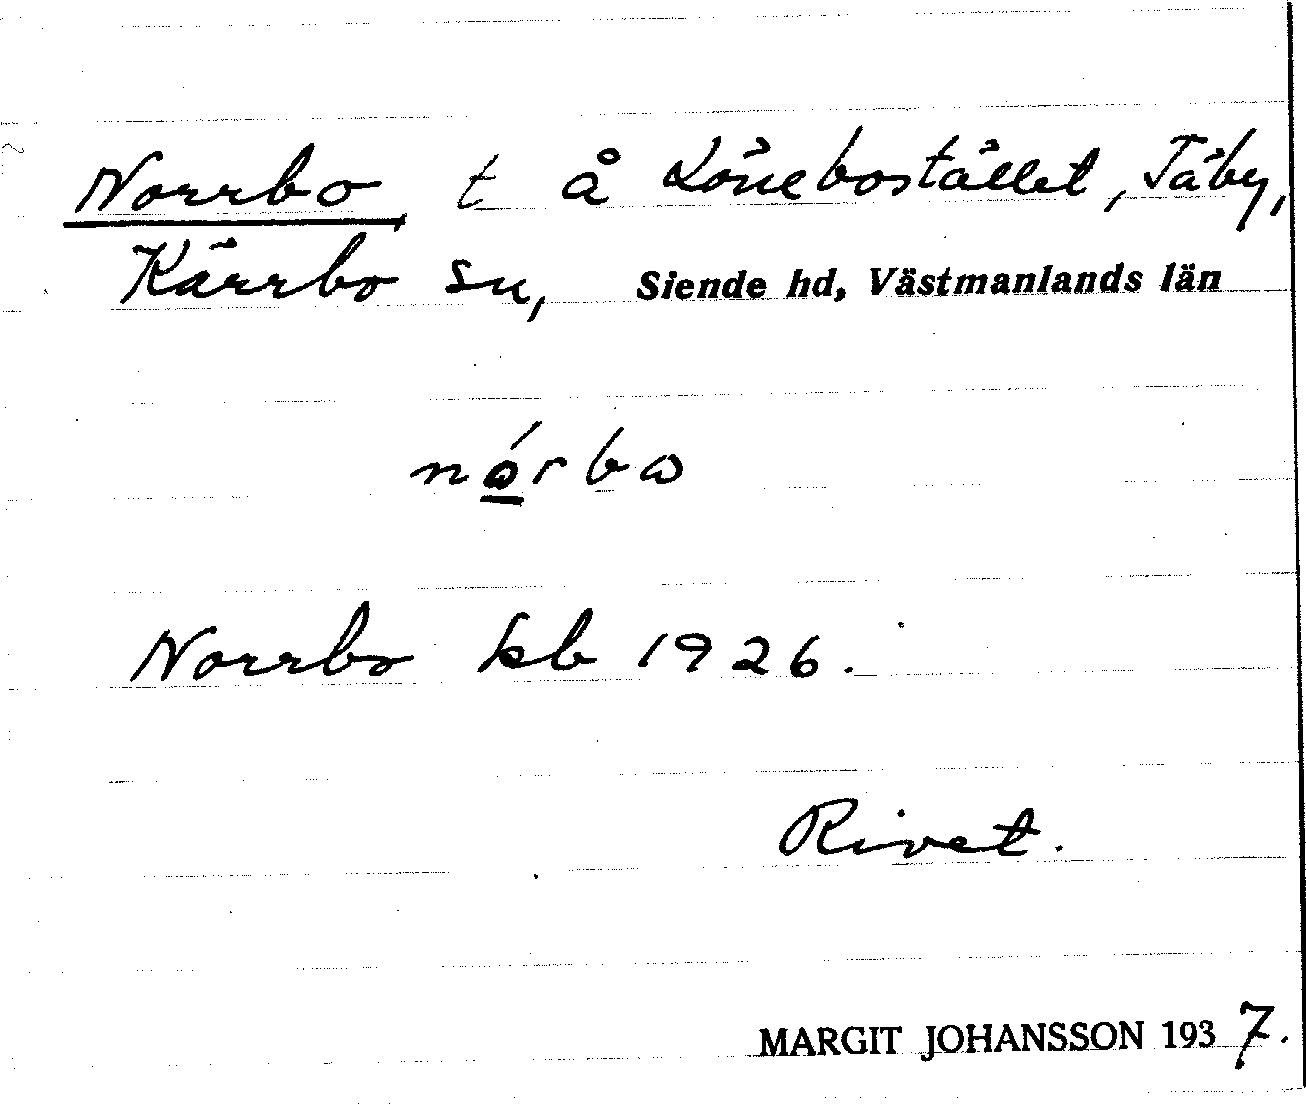 Norrbo, t å Lönebostället, Täby,
Kärrbo sn, Siende hd, Västmanlands län
nórbω
Norrbo kb 1926.
Rivet.
MARGIT JOHANSSON 1937.